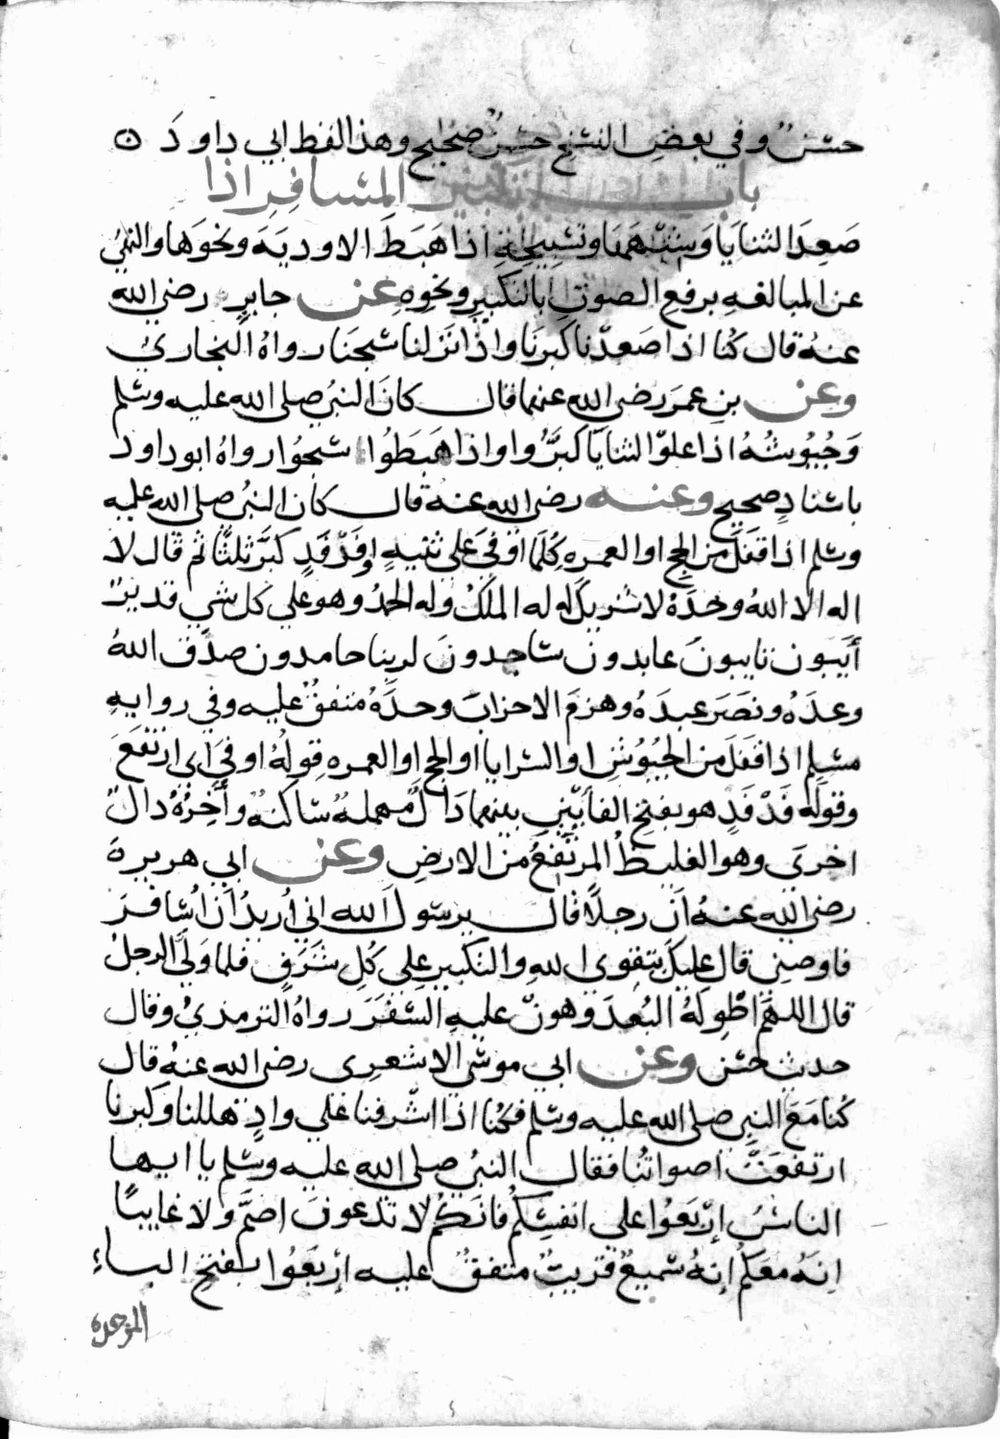 حسن وفي بعض النسخ حسن صحيح وهذا لفظ ابي داود
باب تكبير المسافر اذا
صعد الثنايا وشبهها وتسبيحه اذا هبط الاودية ونحوها والنهي
عن المبالغه برفع الصوت بالتكبير ونحوه عن جابر رضي الله
عنه قال كنا اذا صعدنا كبرنا واذا نزلنا سبحنا رواه البخاري
وعن بن عمر رضي الله عنهما قال كان النبي صلى الله عليه وسلم
وجيوشه اذا علوا الثنايا كبروا واذا هبطوا سبحوا رواه ابو داود
باسناد صحيح وعنه رضي الله عنه قال كان النبي صلى الله عليه
وسلم اذا قفل من الحج او العمره كلما اوفى على ثنيه او فدفد كبر ثلثا ثم قال لا
اله الا الله وحده لا شريك له له الملك وله الحمد وهو على كل شي قدير
آيبون تايبون عابدون ساجدون لربنا حامدون صدق الله
وعده ونصر عبده وهزم الاحزاب وحده متفق عليه وفي روايه
مسلم اذا قفل من الجيوش او السرايا او الحج او العمره قوله اوفى اي ارتفع
وقوله فدفد هو بفتح الفايين بينهما دال مهمله ساكنه وآخره دال
اخرى وهو الغليظ المرتفع من الارض وعن ابي هريره
رضي الله عنه ان رجلا قال يرسول الله اني اريد ان اسافر
فاوصني قال عليك بتقوى الله والتكبير على كل شرف فلما ولى الرجل
قال اللهم اطو له البعد وهون عليه السفر رواه الترمذي وقال
حديث حسن وعن ابي موسى الاشعرى رضي الله عنه قال
كنا مع النبي صلى الله عليه وسلم فكنا اذا اشرفنا على واد هللنا وكبرنا
ارتفعت اصواتنا فقال النبي صلى الله عليه وسلم يا ايها
الناس اربعوا على انفسكم فانكم لا تدعون اصم ولا غايبا
انه معكم انه سميع قريب متفق عليه اربعوا بفتح الباء
الموحده